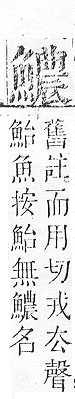 舊註而用切戎去聲
鮐魚按鮐無名